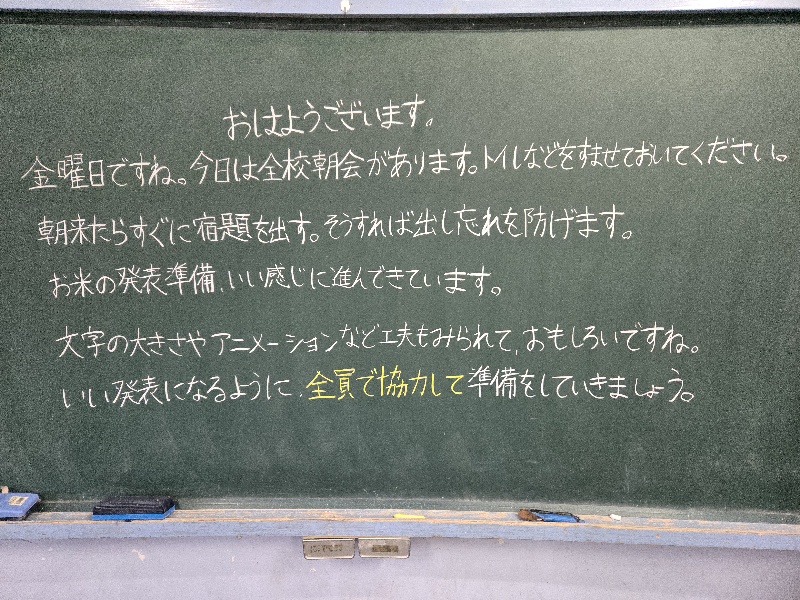 おはようございます。
金曜日ですね。今日は全校朝会があります。トイレなどをすませておいてください。
朝来たらすぐに宿題を出す。そうすれば出し忘れを防げます。
お米の発表準備、いい感じに進んできています。
文字の大きさやアニメーションなど工夫もみられて、おもしろいですね。
いい発表になるように、全員で協力して準備をしていきましょう。